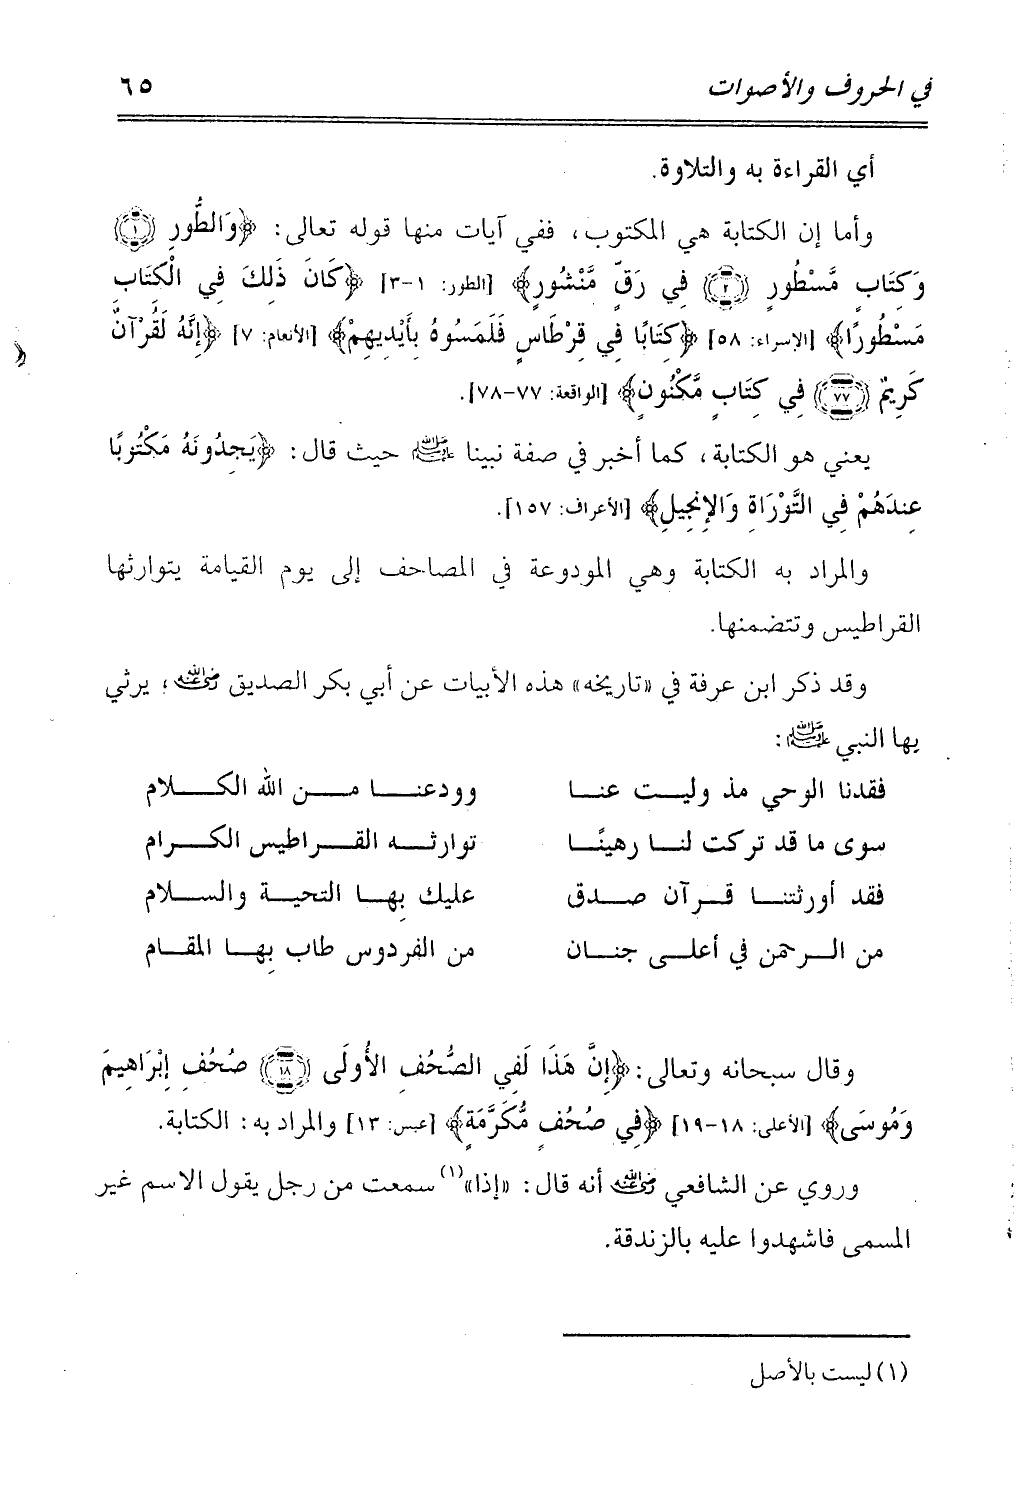 في الحروف والأصوات ٦٥
أي القراءة به والتلاوة.
وأما إن الكتابة هي المكتوب، ففي آيات منها قوله تعالى: ﴿وَالطُّورِ (١)
وَكِتَابٍ مَّسْطُورٍ (٢) فِي رَقٍّ مَّنْشُورٍ﴾ [الطور: ١-٣] ﴿كَانَ ذَلِكَ فِي الْكِتَابِ
مَسْطُورًا﴾ [الإسراء: ٥٨] ﴿كِتَابًا فِي قِرْطَاسٍ فَلَمَسُوهُ بِأَيْدِيهِمْ﴾ [الأنعام: ٧] ﴿إِنَّهُ لَقُرْآنٌ
كَرِيمٌ (٧٧) فِي كِتَابٍ مَّكْنُونٍ﴾ [الواقعة: ٧٧-٧٨].
يعني هو الكتابة، كما أخبر في صفة نبينا ﷺ حيث قال: ﴿يَجِدُونَهُ مَكْتُوبًا
عِندَهُمْ فِي التَّوْرَاةِ وَالإِنجِيلِ﴾ [الأعراف: ١٥٧].
والمراد به الكتابة وهي المودوعة في المصاحف إلى يوم القيامة يتوارثها
القراطيس وتتضمنها.
وقد ذكر ابن عرفة في «تاريخه» هذه الأبيات عن أبي بكر الصديق رضي الله عنه؛ يرثي
بها النبي ﷺ:
فقدنا الوحي مذ وليت عنا وودعنا من الله الكلام
سوى ما قد تركت لنا رهينًا توارثه القراطيس الكرام
فقد أورثتنا قرآن صدق عليك بها التحية والسلام
من الرحمن في أعلى جنان من الفردوس طاب بها المقام
وقال سبحانه وتعالى: ﴿إِنَّ هَذَا لَفِي الصُّحُفِ الأُولَى (١٨) صُحُفِ إِبْرَاهِيمَ
وَمُوسَى﴾ [الأعلى: ١٨-١٩] ﴿فِي صُحُفٍ مُّكَرَّمَةٍ﴾ [عبس: ١٣] والمراد به: الكتابة.
وروي عن الشافعي رضي الله عنه أنه قال: «إذا»(١) سمعت من رجل يقول الاسم غير
المسمى فاشهدوا عليه بالزندقة.
(١) ليست بالأصل